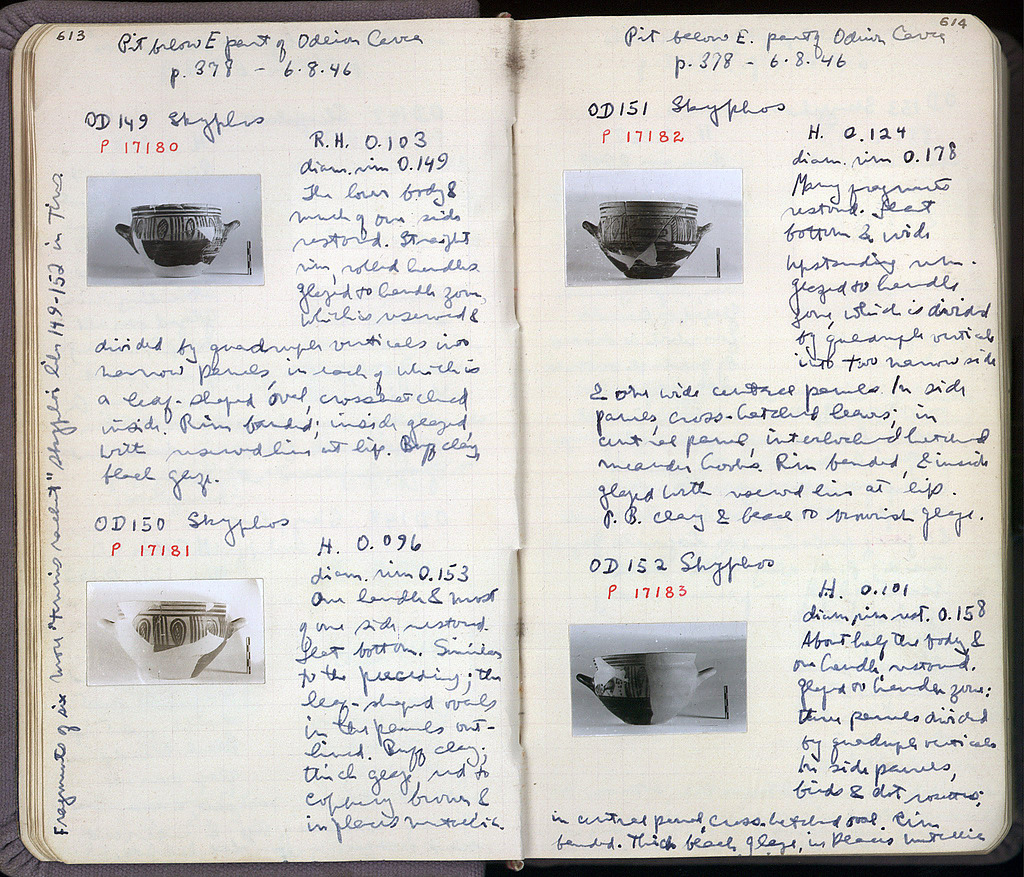 613
Pit below E part of Odeion Cavea
p. 378 - 6.8.46
OD 149 Skyphos
P 17180
R.H. 0.103
diam. rim 0.149
The lower body &
much of one side
restored. Straight
rim, rolled handles.
glazed to handle zone,
which is reserved &
divided by quadruple verticals into
narrow panels, in each of which is
a leaf-shaped oval, crosshatched
inside. Rim banded; inside glazed,
with reserved line at lip. Buff clay,
black glaze.
OD 150 Skyphos
P 17181
H. 0.096
diam. rim 0.153
One handle & most
of one side restored.
Flat bottom. Similar
to the preceding; the
leaf-shaped ovals
in the panels out-
lined. Buff clay;
thick glaze, red to
coppery brown &
in places metallic.
Fragments of six more skyphoi like 149-152 in Tins.
614
Pit below E. part of Odeion Cavea
p. 378 - 6.8.46
OD 151 Skyphos
P 17182
H. 0.124
diam. rim 0.178
Many fragments
restored. Flat
bottom & wide
upstanding rim.
glazed to handle
zone, which is divided
by quadruple verticals
into two narrow side
& one wide central panels. In side
panels, cross-hatched leaves; in
central panel, interlocked hatched
meander hooks. Rim banded, & inside
glazed with reserved line at lip.
P. B. clay & black to brownish glaze.
OD 152 Skyphos
P 17183
H. 0.101
diam. rim rest. 0.158
About half the body, &
one handle, restored.
glazed to handle zone:
three panels divided
by quadruple verticals
In side panels,
birds & dot rosettes;
in central panel, cross-hatched oval. Rim
banded. Thick black glaze, in places metallic